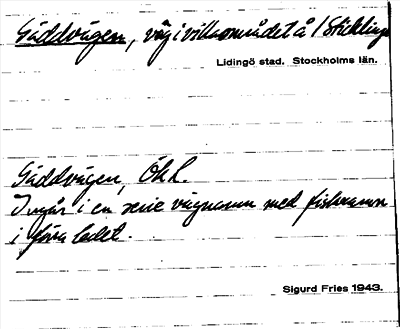 Gäddvägen, väg i villaområdet å / Sticklinge
Lidingö stad. Stockholms län.
Gäddvägen,
Ingår i en serie vägnamn med fisknamn
i förra ledet.
Sigurd Fries 1943.